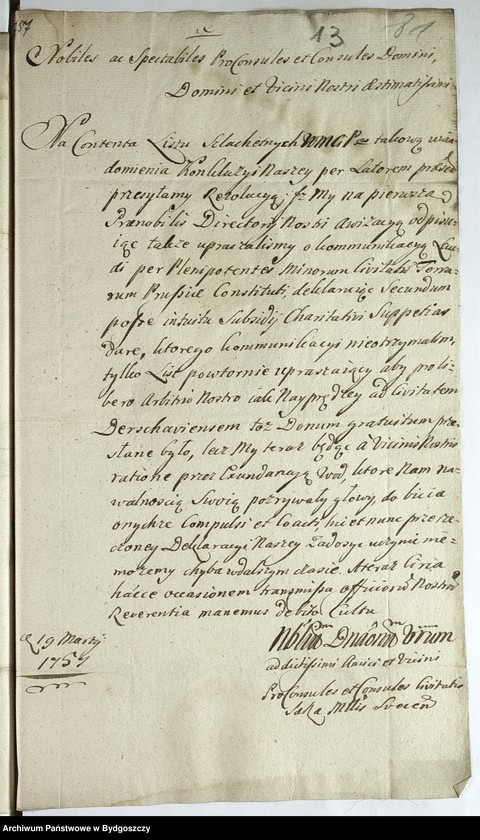 257
13
81
Nobiles ac Spectabiles ProConsules et Consules Domini,
Domini et Vicini Nostri Æstimatissimi
Na Contenta Listu Szlachetnych WMGP takową wia-
domienia Konkluzyi Naszey per Latorem
przesyłamy Rezolucyą; iż My na pierwszą
Prænobilis Directorij Nostri Awizacyą odpisu-
iąc także upraszalismy o kommunikacyą
di per Plenipotentes Minorum Civitatū Terra-
rum Prussiæ Constituti, deklaruiąc Secundum
posse intuitu Subsidij Charitativi Suppetias
dare, ktorego kommunikacyi nieotrzymalismy,
tylko List powtornie upraszaiący aby pro li-
bero Arbitrio Nostro iak Nayprędzey ad Civitatem
Derschaviensem toż Donum gratuitum prze-
słane było, lecz My teraz będąc a Vicinis Nostris
ratione przez Exundancyą Wod, ktore Nam na-
walnoscią Swoią pozrywały głowy, do bicia
onychże Compulsi et Coacti, hic et nunc prze rze-
czoney Deklaracyi Naszey Zadosyc uczynic nie-
możemy chyba w dalszym czasie. A teraz Circa
hácce occasionem transmissa officiorū Nostrorū
Reverentia manemus debito Cultu
19 Martij
1757
addictissimi Amici et Vicini
ProConsules et Consules Civitatis
Archiwum Państwowe w Bydgoszczy